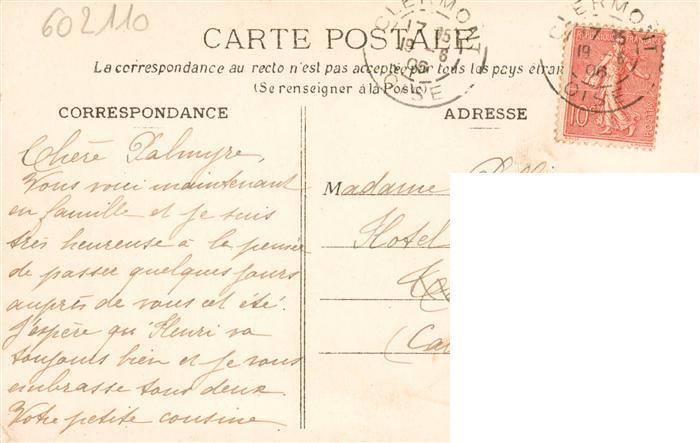 602110
CARTE POSTALE
La correspondance au recto n'est pas acceptée par tous les pays étran
(Se renseigner à la Poste)
CLERMONT
17 15
19 - 8
06
OISE
CLERMONT
19
06
OISE
10c
CORRESPONDANCE
ADRESSE
Chère Palmyre,
Vous voici maintenant
en famille et je suis
très heureuse à la pensée
de passer quelques jours
auprès de vous cet été.
J'espère qu'Henri va
toujours bien et je vous
embrasse tous deux.
Votre petite cousine
Madame
Hotel
(Ca